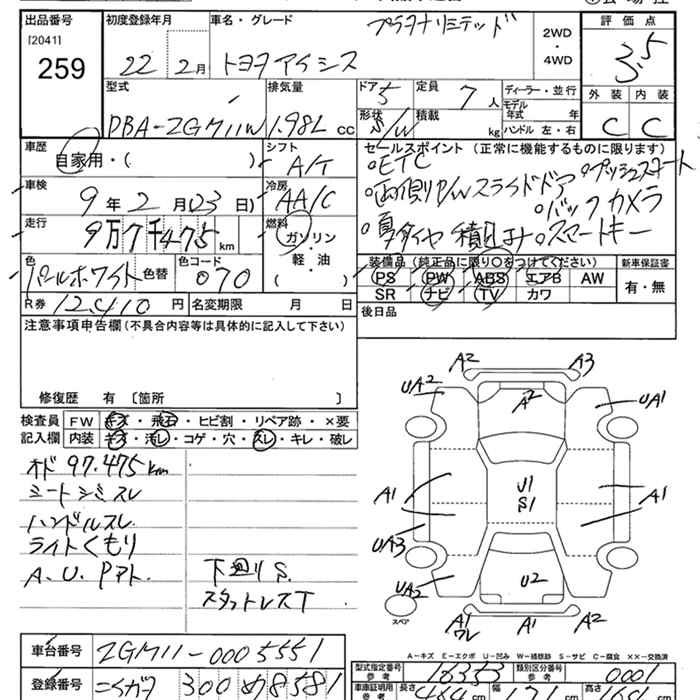 出品番号 初度登録年月 車名・グレード プラタナリミテッド 評価点
[2041] 2WD
259 22年 2月 トヨタアイシス 4WD 3.5
型式 排気量 ドア 5 定員 7人 ディーラー・並行 外装 内装
モデル年式 年
DBA-ZGM11W 1.98L cc 形状 S/W 積載 kg ハンドル 左・右 C C
車歴 自家用・( ) シフト A/T セールスポイント (正常に機能するものに限ります)
○ETC ○プッシュスタート
車検 9年 2月 (23日) 冷房 AA/C ○両側P/Wスライドドア
○バックカメラ
走行 9万7千475km 燃料 ガソリン ○夏タイヤ積込み ○スマートキー
軽・油
色 パールホワイト 色替 色コード 070 ( ) 装備品 (純正品に限り○をつけてください) 新車保証書
PS PW ABS エアB AW 有・無
R券 12,410円 名変期限 月 日 SR ナビ TV カワ
注意事項申告欄(不具合内容等は具体的に記入して下さい) 後日品
修復歴 有 〔箇所 〕
検査員 FW キズ・飛石・ヒビ割・リペア跡・×要
記入欄 内装 キズ・汚レ・コゲ・穴・スレ・キレ・破レ
オド 97.475km
シートシミスレ
ハンドルスレ
ライトくもり
A.U.Pアト. 下廻りS.
スタットレスT
A2 A3
UA2 A2 UA1
U1
S1
A1 A1
UA3
UA2 U2
スペア A1 A1 A2
ワレ
A-キズ E-エクボ U-凹み W-補修跡 S-サビ C-腐食 ××-交換済
車台番号 ZGM11-0005551
型式指定番号 16353 類別区分番号 0001
参考 参考
登録番号 ニイガタ 300 め8581
車庫証明用 長さ 幅 高さ